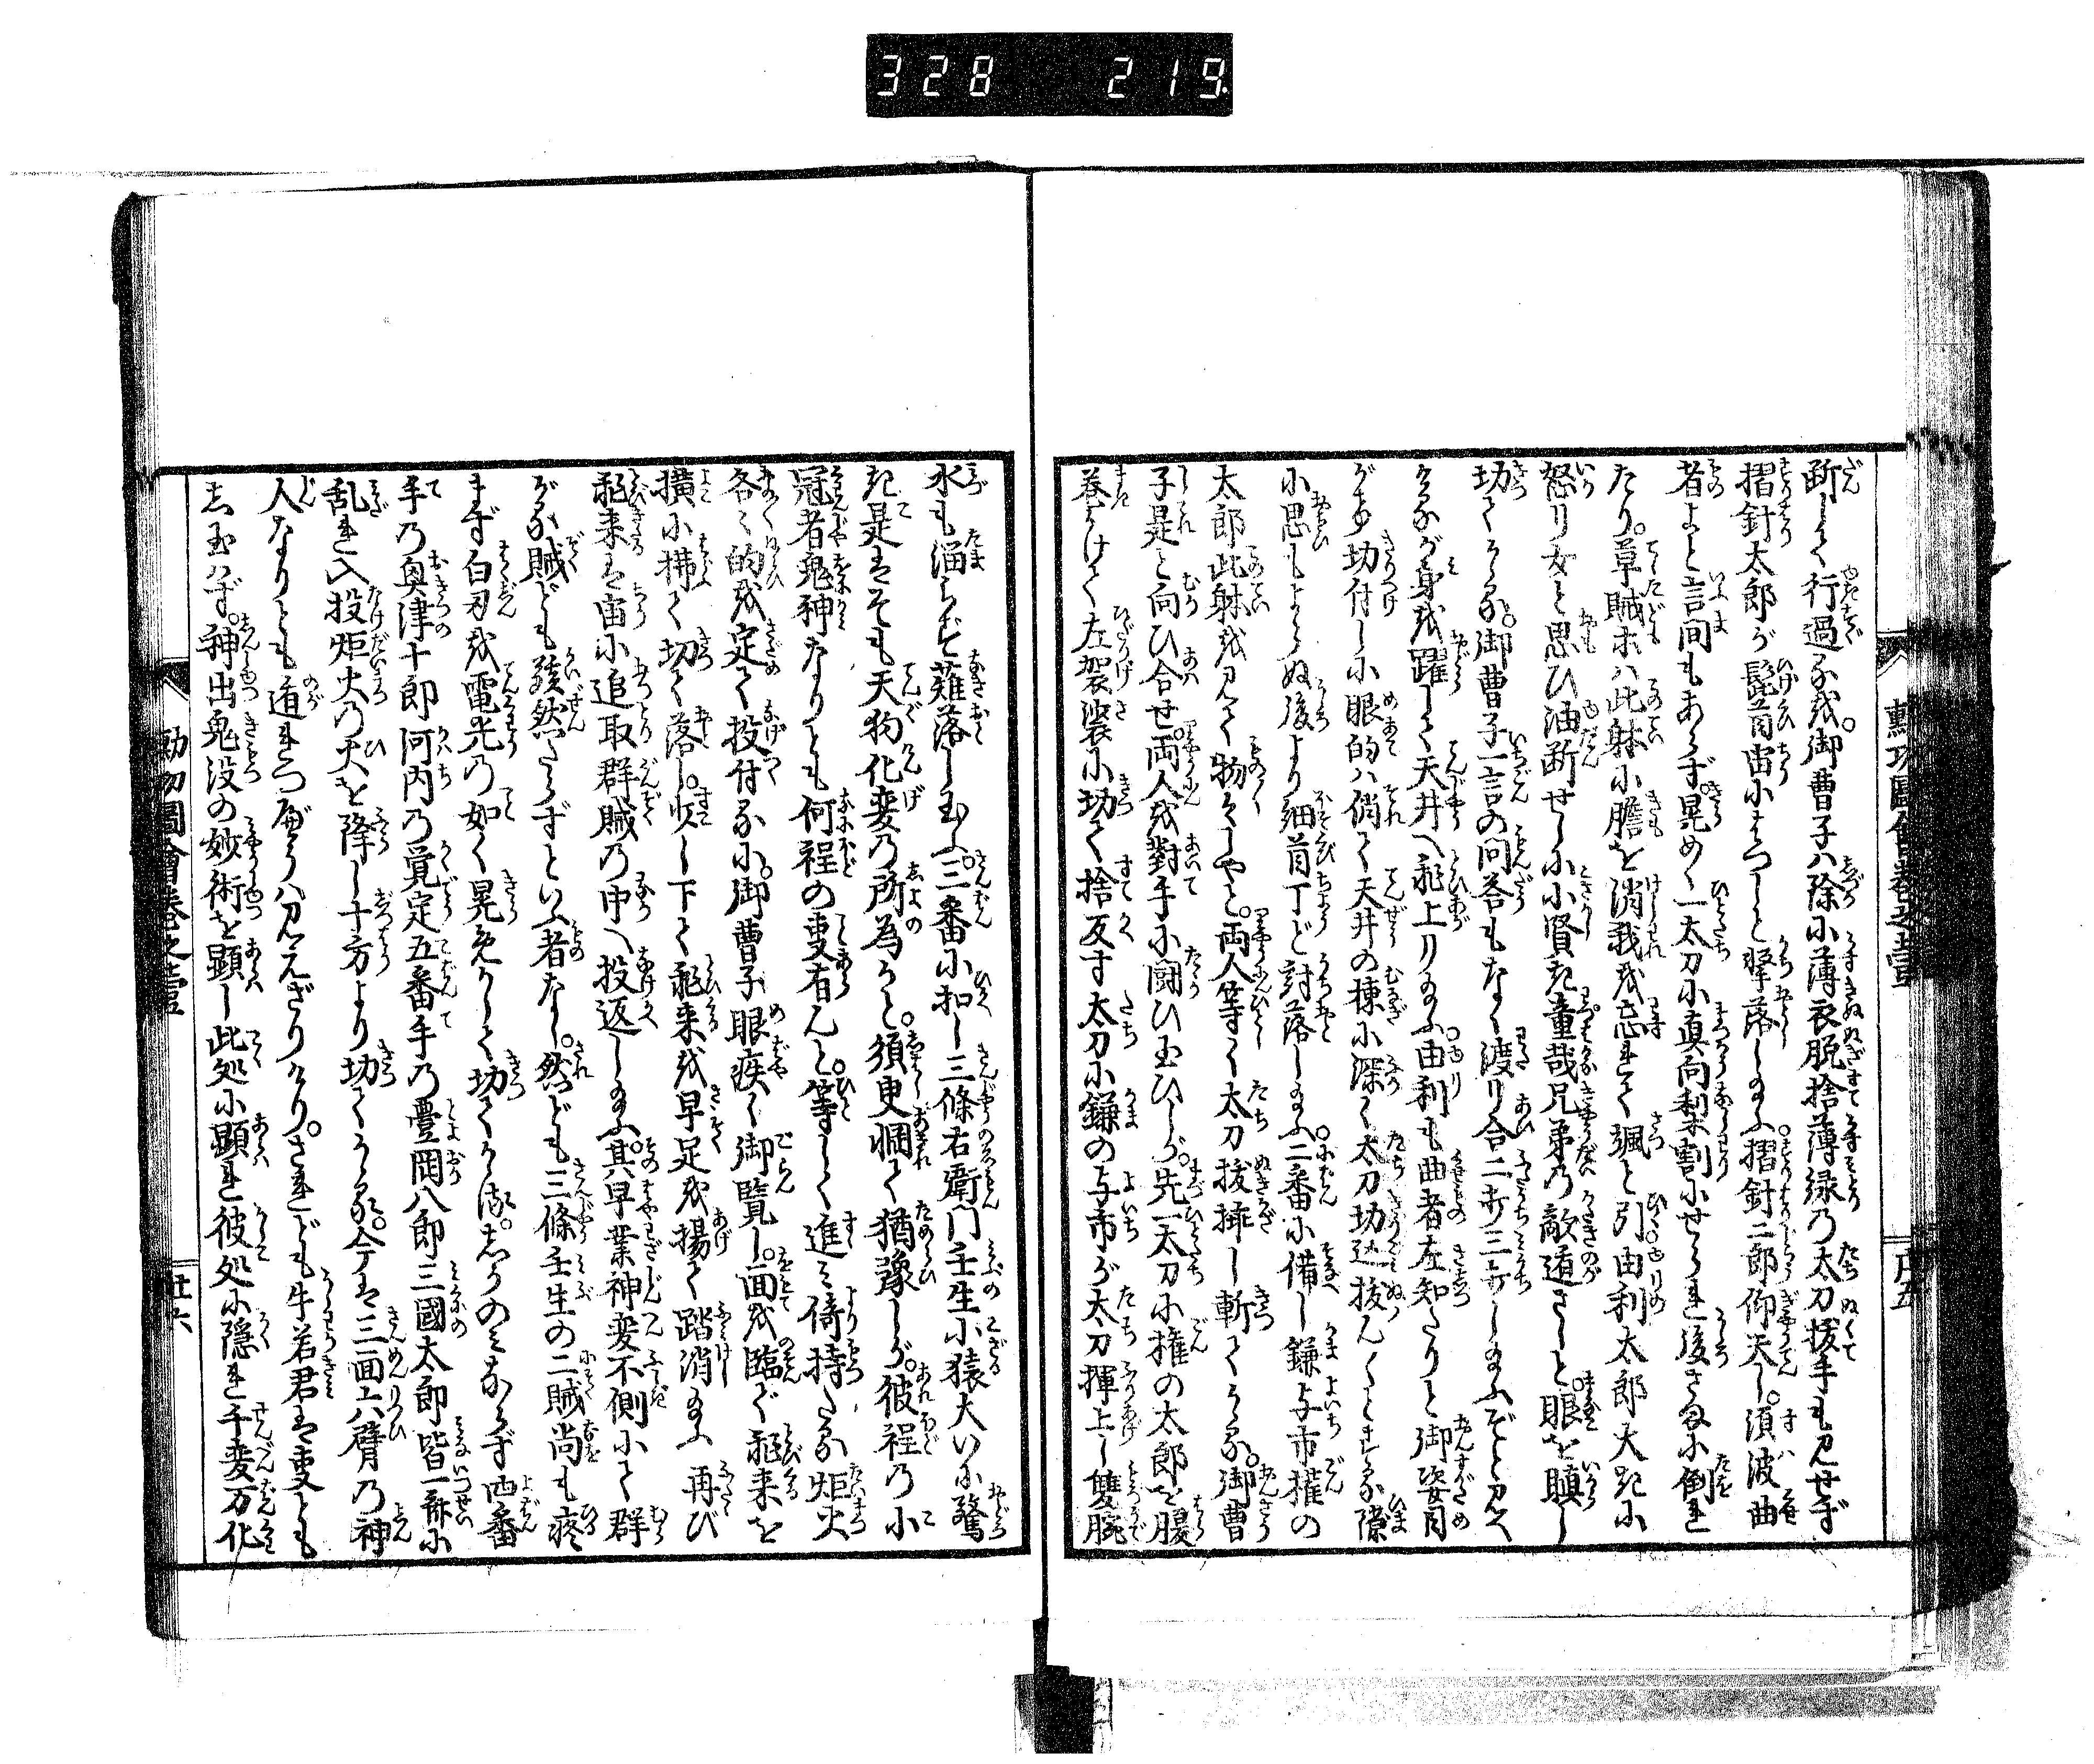 328 219
勲功圖會巻之壹
廿五
断して行過るを。御曹子ハ除に薄衣脱捨薄緑の太刀抜手も見せず
摺針太郎が髭首宙にはつしと撃落し給ふ。摺針二郎仰天し。須波曲
者よと言間もあらず。晃めく一太刀に真向梨割にせられ後さまに倒れ
たり。草賊ホハ此躰に膽を消我を忘れて颯と引。由利太郎大きに
怒り女と思ひ油断せしに小賢き童哉兄弟の敵遁さしと。眼を瞋し
切てかゝる。御曹子一言の問答もなく渡り合二打三打し給ふぞと見へ
けるが身を躍して天井へ飛上り給ふ。由利も曲者左知たりと御姿目
がけ切付しに眼的ハ徜て天井の棟に深く太刀切込抜んくとする隙
に思もよらぬ後より細首丁ど討落し給ふ。二番に備し鎌与市権の
太郎此躰を見て物々しやと。両人等く太刀抜挿し斬てかゝる。御曹
子是と向ひ合せ。両人を對手に闘ひ玉ひしが。先一太刀に権の太郎を腰
巻かけて左袈裟に切て捨反す太刀に鎌の与市が太刀揮上し雙腕
水も溜らず薙落し玉ふ。三番に扣し三條右衛門壬生小猿大いに驚
き是はそも天狗化変の所為かと。須臾惘て猶豫しが。彼程の小
冠者鬼神なりとも何程の事有んと。等しく進み倚持たる炬火
各々的を定て投付るに。御曹子眼疾く御覧し。面を臨で飛来を
横に拂て切て落し。火し下て飛来を早足を揚て踏消給ふ再び
飛来は宙に追取群賊の中へ投返し給ふ。其早業神変不側にて群
がる賊ども駭然たらずといふ者なし。然ども三條壬生の二賊尚も疼
まず白刃を電光の如く晃めかして切てかゝる。しかのみならず四番
手の奥津十郎河内の覚定五番手の豊岡八郎三國太郎皆一斉に
乱れ入投炬火の火を降し十方より切てかゝる。今は三面六臂の神
人なりとも遁れつべうハ見えざりけり。されども牛若君は事とも
し玉ハず。神出鬼没の妙術を顕し此処に顕れ彼処に隠れ千変万化
勲功圖會巻之壹
廿六